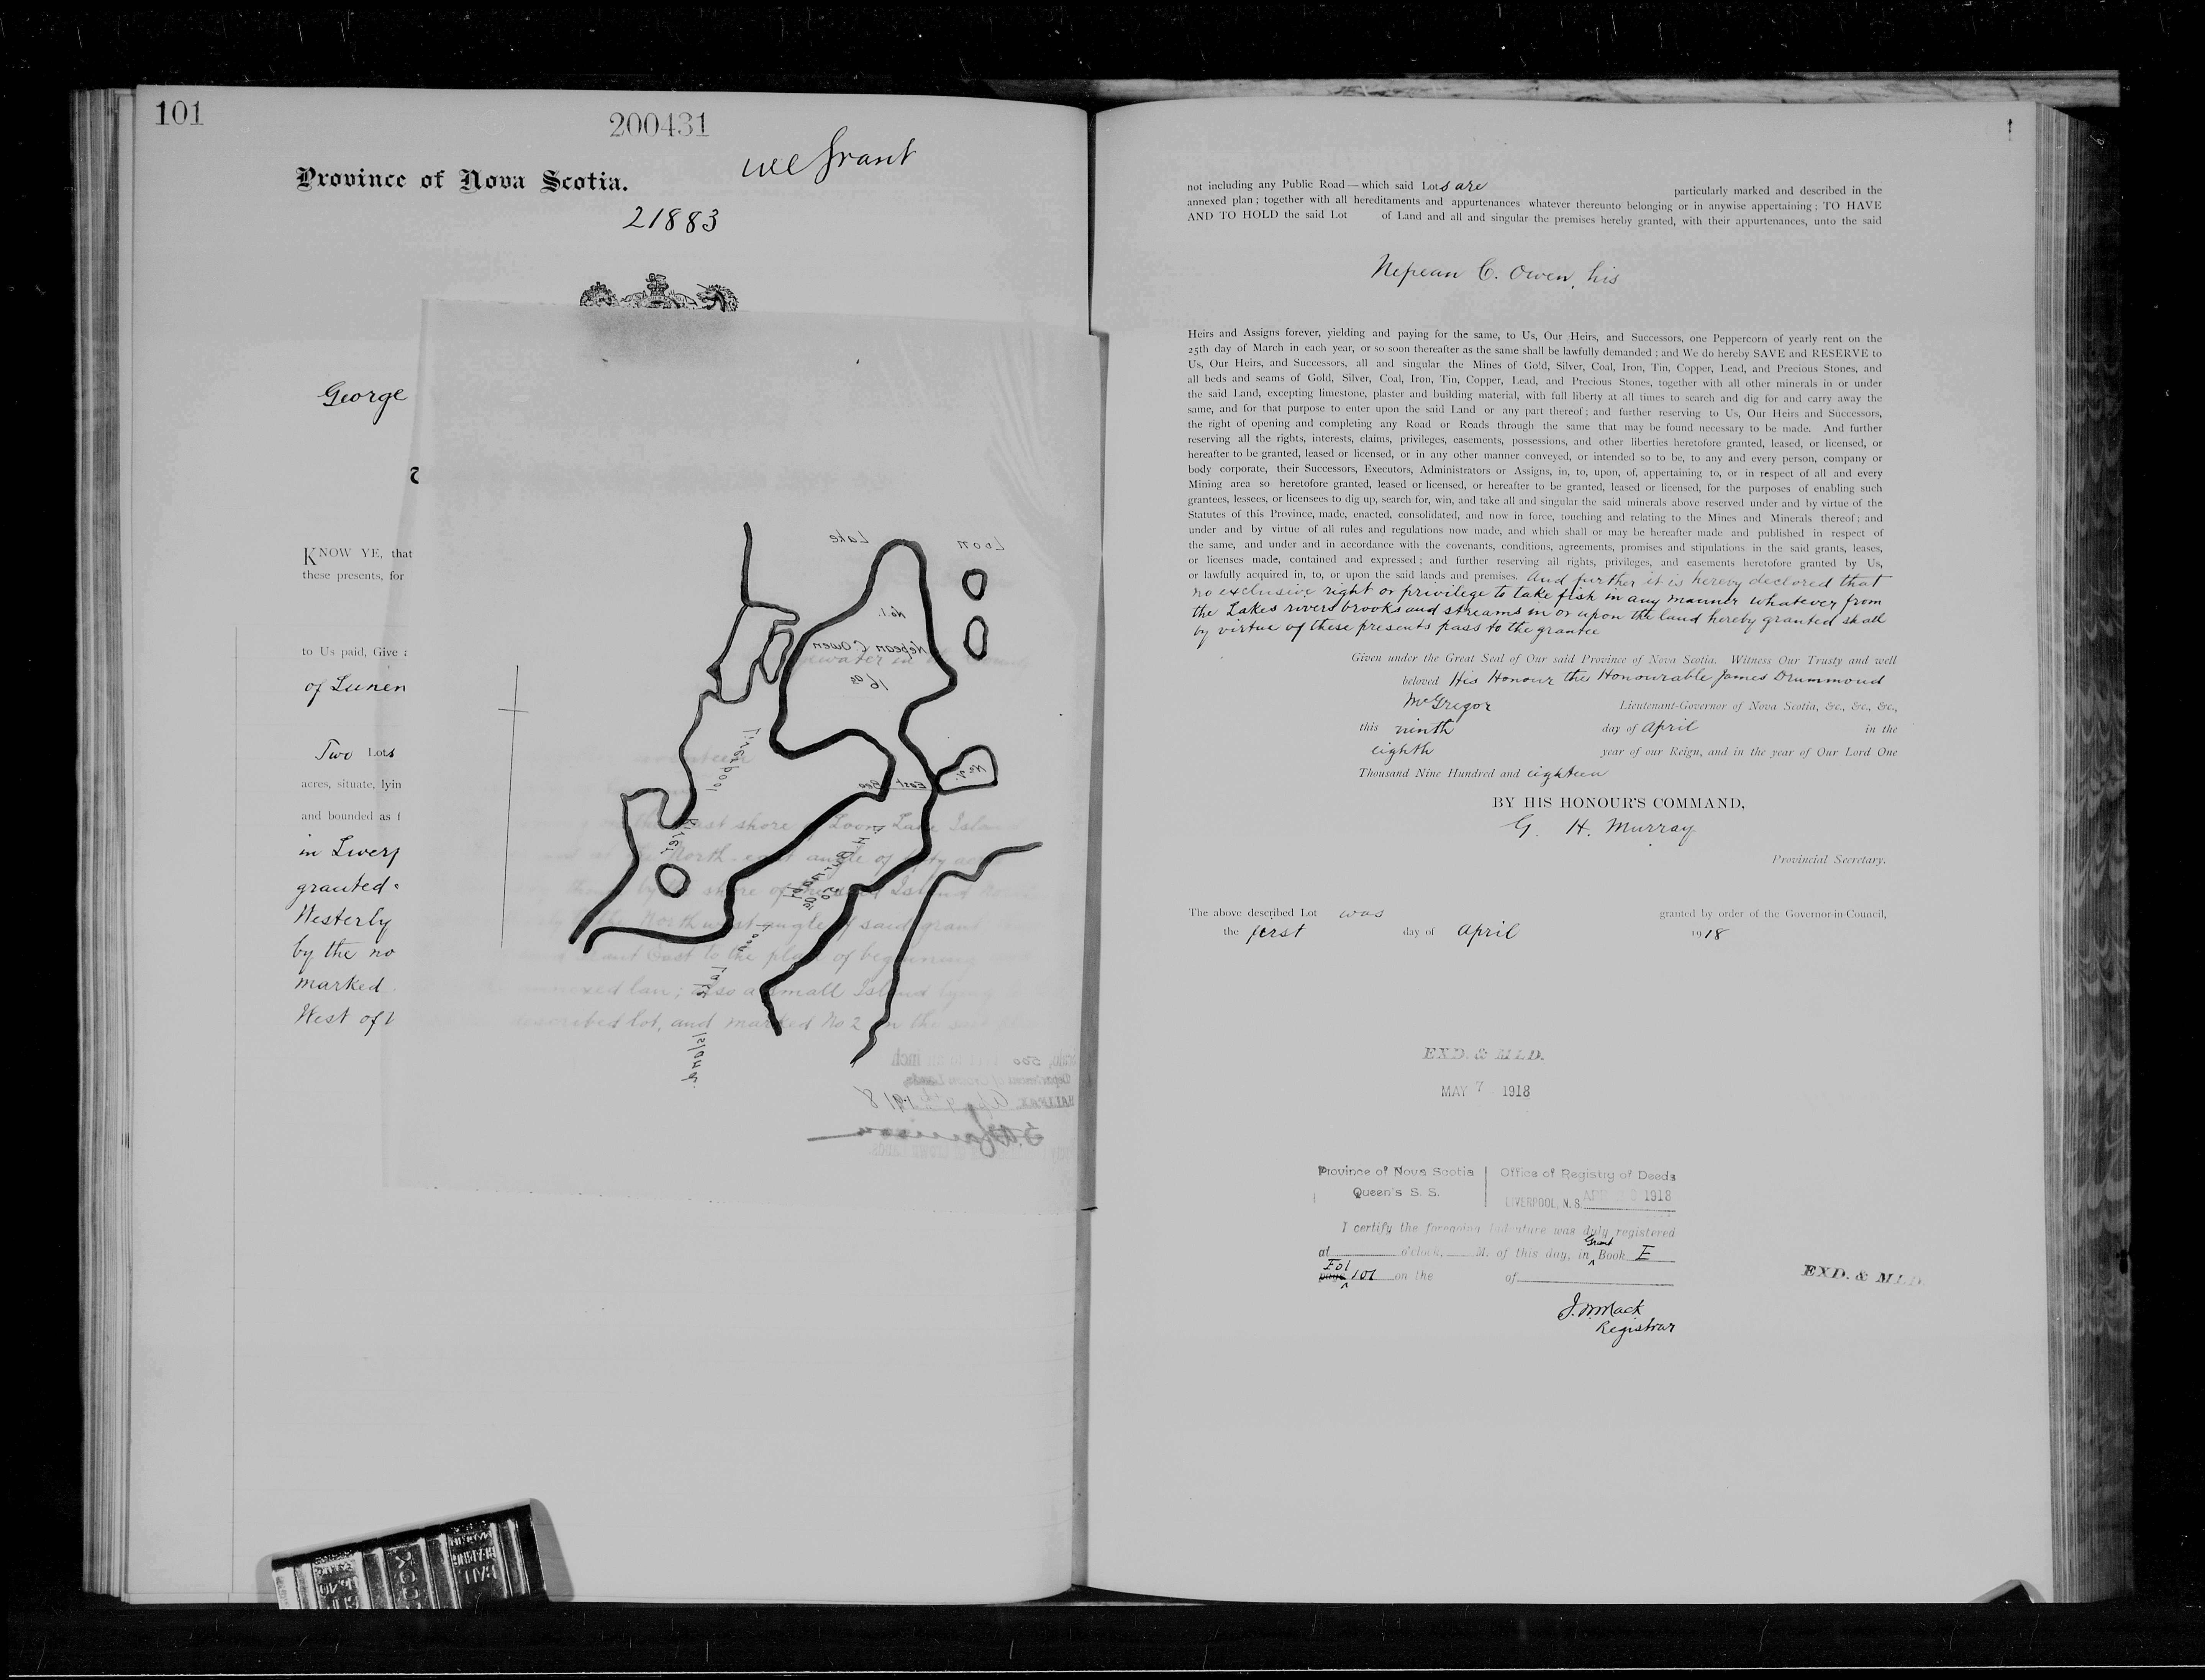 101
200431
Grant
Province of Nova Scotia.
21883
George
KNOW YE, that
these presents, for
to Us paid, Give
of Lunen
Two Lots
acres, situate, lyin
and bounded as f
in Liverp
granted
Westerly
by the no
marked
West of
Loon Lake
No 1.
Nepean C. Owen
16 as
No 2.
East Bog
Liverpool
River
Loon Lake Island.
seventeen
east shore Loon Lake Island
North-east angle of
by the shore of said Island
North west angle of said grant
East to the place of beginning
also a small Island lying
described lot, and marked No 2 on the said
500 inch
Department of Crown Lands
HALIFAX 1918
not including any Public Road — which said Lots are particularly marked and described in the
annexed plan; together with all hereditaments and appurtenances whatever thereunto belonging or in anywise appertaining; TO HAVE
AND TO HOLD the said Lot of Land and all and singular the premises hereby granted, with their appurtenances, unto the said
Nepean C. Owen, his
Heirs and Assigns forever, yielding and paying for the same, to Us, Our Heirs, and Successors, one Peppercorn of yearly rent on the
25th day of March in each year, or so soon thereafter as the same shall be lawfully demanded; and We do hereby SAVE and RESERVE to
Us, Our Heirs, and Successors, all and singular the Mines of Gold, Silver, Coal, Iron, Tin, Copper, Lead, and Precious Stones, and
all beds and seams of Gold, Silver, Coal, Iron, Tin, Copper, Lead, and Precious Stones, together with all other minerals in or under
the said Land, excepting limestone, plaster and building material, with full liberty at all times to search and dig for and carry away the
same, and for that purpose to enter upon the said Land or any part thereof; and further reserving to Us, Our Heirs and Successors,
the right of opening and completing any Road or Roads through the same that may be found necessary to be made. And further
reserving all the rights, interests, claims, privileges, easements, possessions, and other liberties heretofore granted, leased, or licensed, or
hereafter to be granted, leased or licensed, or in any other manner conveyed, or intended so to be, to any and every person, company or
body corporate, their Successors, Executors, Administrators or Assigns, in, to, upon, of, appertaining to, or in respect of all and every
Mining area so heretofore granted, leased or licensed, or hereafter to be granted, leased or licensed, for the purposes of enabling such
grantees, lessees, or licensees to dig up, search for, win, and take all and singular the said minerals above reserved under and by virtue of the
Statutes of this Province, made, enacted, consolidated, and now in force, touching and relating to the Mines and Minerals thereof; and
under and by virtue of all rules and regulations now made, and which shall or may be hereafter made and published in respect of
the same, and under and in accordance with the covenants, conditions, agreements, promises and stipulations in the said grants, leases,
or licenses made, contained and expressed; and further reserving all rights, privileges, and easements heretofore granted by Us,
or lawfully acquired in, to, or upon the said lands and premises. And further it is hereby declared that
no exclusive right or privilege to take fish in any manner whatever from
the Lakes rivers brooks and streams in or upon the land hereby granted shall
by virtue of these presents pass to the grantee
Given under the Great Seal of Our said Province of Nova Scotia. Witness Our Trusty and well
beloved His Honour the Honourable James Drummond
McGregor Lieutenant-Governor of Nova Scotia, &c., &c., &c.,
this ninth day of April in the
eighth year of our Reign, and in the year of Our Lord One
Thousand Nine Hundred and eighteen
BY HIS HONOUR'S COMMAND,
G. H. Murray
Provincial Secretary.
The above described Lot was granted by order of the Governor-in-Council,
the first day of April 1918
EXD. & MLD.
MAY 7 1918
Province of Nova Scotia
Queen's S. S.
Office of Registry of Deeds
LIVERPOOL, N. S. 1918
I certify the foregoing Indenture was duly registered
at o'clock, M. of this day, in Grant Book E
page Fol 101 on the of
EXD. & MLD.
J. W. Mack
Registrar